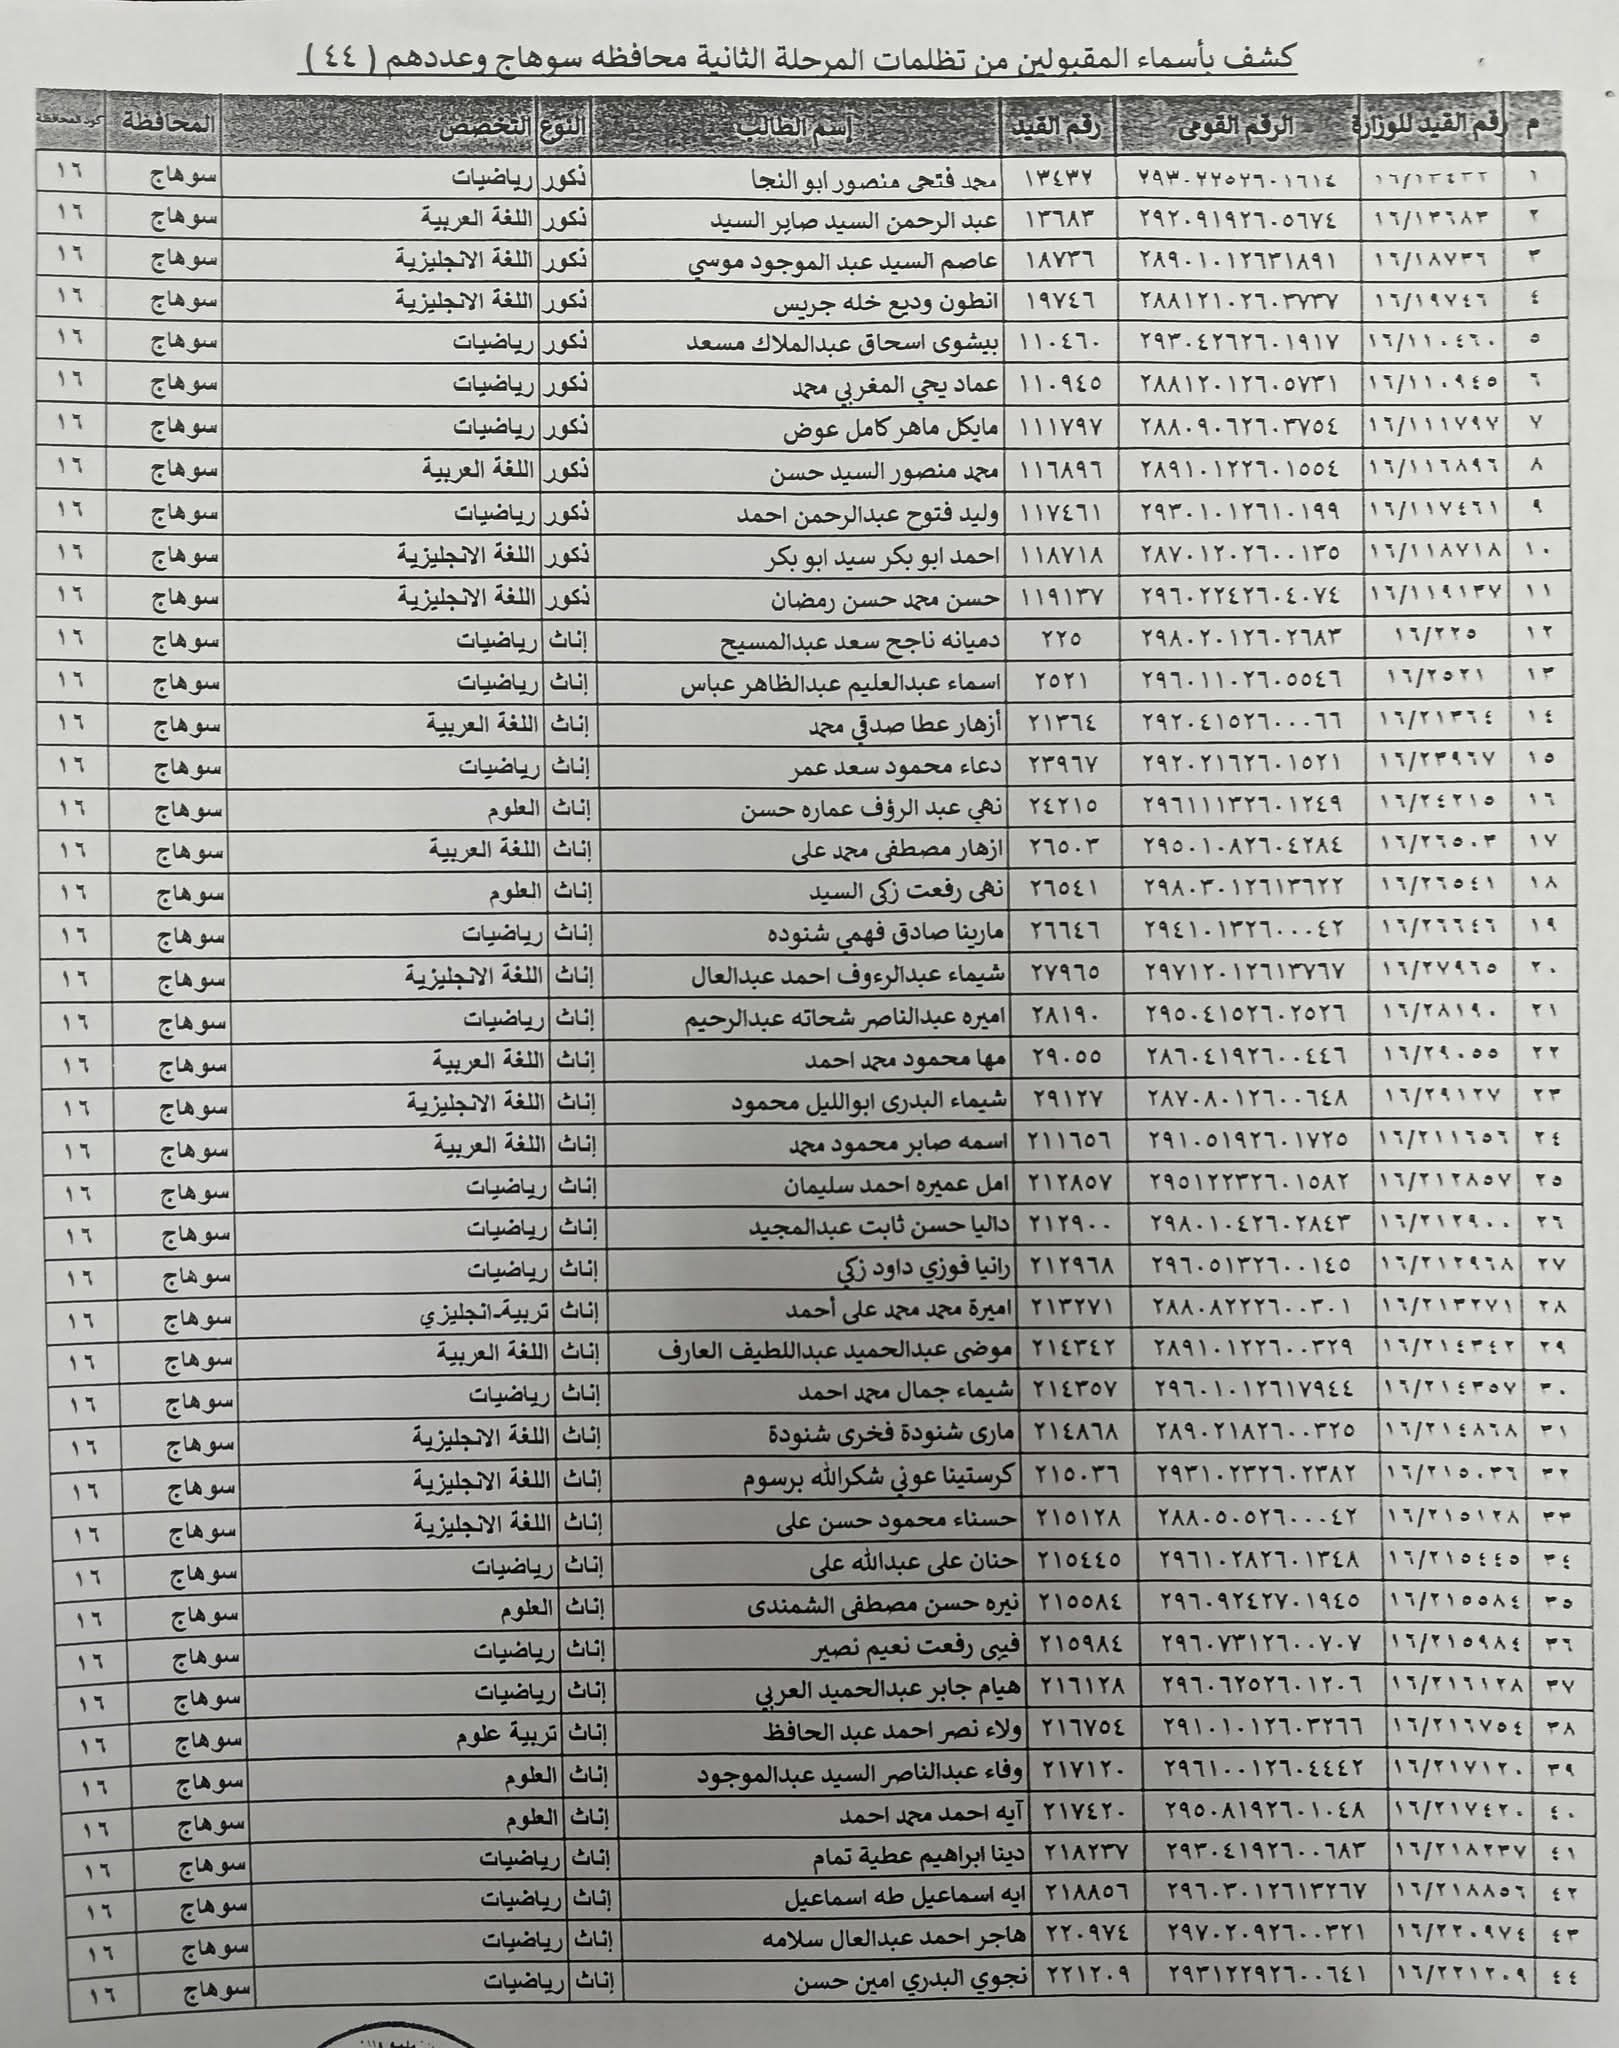 كشف بأسماء المقبولين من تظلمات المرحلة الثانية محافظه سوهاج وعددهم ( ٤٤ )
م رقم القيد للوزارة الرقم القومى رقم القيد إسم الطالب النوع التخصص المحافظة كود المحافظة
١ ١٦/١٣٤٣٢ ٢٩٣٠٢٢٥٢٦٠١٦١٤ ١٣٤٣٢ محمد فتحى منصور ابو النجا ذكور رياضيات سوهاج ١٦
٢ ١٦/١٣٦٨٣ ٢٩٢٠٩١٩٢٦٠٥٦٧٤ ١٣٦٨٣ عبد الرحمن السيد صابر السيد ذكور اللغة العربية سوهاج ١٦
٣ ١٦/١٨٧٣٦ ٢٨٩٠١٠١٢٦٣١٨٩١ ١٨٧٣٦ عاصم السيد عبد الموجود موسي ذكور اللغة الانجليزية سوهاج ١٦
٤ ١٦/١٩٧٤٦ ٢٨٨١٢١٠٢٦٠٣٧٣٧ ١٩٧٤٦ انطون وديع خله جريس ذكور اللغة الانجليزية سوهاج ١٦
٥ ١٦/١١٠٤٦٠ ٢٩٣٠٤٢٦٢٦٠١٩١٧ ١١٠٤٦٠ بيشوى اسحاق عبدالملاك مسعد ذكور رياضيات سوهاج ١٦
٦ ١٦/١١٠٩٤٥ ٢٨٨١٢٠١٢٦٠٥٧٣١ ١١٠٩٤٥ عماد يحي المغربي محمد ذكور رياضيات سوهاج ١٦
٧ ١٦/١١١٧٩٧ ٢٨٨٠٩٠٦٢٦٠٣٧٥٤ ١١١٧٩٧ مايكل ماهر كامل عوض ذكور رياضيات سوهاج ١٦
٨ ١٦/١١٦٨٩٦ ٢٨٩١٠١٢٢٦٠١٥٥٤ ١١٦٨٩٦ محمد منصور السيد حسن ذكور اللغة العربية سوهاج ١٦
٩ ١٦/١١٧٤٦١ ٢٩٣٠١٠١٢٦١٠١٩٩ ١١٧٤٦١ وليد فتوح عبدالرحمن احمد ذكور رياضيات سوهاج ١٦
١٠ ١٦/١١٨٧١٨ ٢٨٧٠١٢٠٢٦٠٠١٣٥ ١١٨٧١٨ احمد ابو بكر سيد ابو بكر ذكور اللغة الانجليزية سوهاج ١٦
١١ ١٦/١١٩١٣٧ ٢٩٦٠٢٢٤٢٦٠٤٠٧٤ ١١٩١٣٧ حسن محمد حسن رمضان ذكور اللغة الانجليزية سوهاج ١٦
١٢ ١٦/٢٢٥ ٢٩٨٠٢٠١٢٦٠٢٦٨٣ ٢٢٥ دميانه ناجح سعد عبدالمسيح إناث رياضيات سوهاج ١٦
١٣ ١٦/٢٥٢١ ٢٩٦٠١١٠٢٦٠٥٥٤٦ ٢٥٢١ اسماء عبدالعليم عبدالظاهر عباس إناث رياضيات سوهاج ١٦
١٤ ١٦/٢١٣٦٤ ٢٩٢٠٤١٥٢٦٠٠٠٦٦ ٢١٣٦٤ أزهار عطا صدقي محمد إناث اللغة العربية سوهاج ١٦
١٥ ١٦/٢٣٩٦٧ ٢٩٢٠٢١٦٢٦٠١٥٢١ ٢٣٩٦٧ دعاء محمود سعد عمر إناث رياضيات سوهاج ١٦
١٦ ١٦/٢٤٢١٥ ٢٩٦١١١٣٢٦٠١٢٤٩ ٢٤٢١٥ نهي عبد الرؤف عماره حسن إناث العلوم سوهاج ١٦
١٧ ١٦/٢٦٥٠٣ ٢٩٥٠١٠٨٢٦٠٤٢٨٤ ٢٦٥٠٣ ازهار مصطفى محمد على إناث اللغة العربية سوهاج ١٦
١٨ ١٦/٢٦٥٤١ ٢٩٨٠٣٠١٢٦١٣٦٢٢ ٢٦٥٤١ نهى رفعت زكى السيد إناث العلوم سوهاج ١٦
١٩ ١٦/٢٦٦٤٦ ٢٩٤١٠١٣٢٦٠٠٠٤٢ ٢٦٦٤٦ مارينا صادق فهمي شنوده إناث رياضيات سوهاج ١٦
٢٠ ١٦/٢٧٩٦٥ ٢٩٧١٢٠١٢٦١٣٧٦٧ ٢٧٩٦٥ شيماء عبدالرءوف احمد عبدالعال إناث اللغة الانجليزية سوهاج ١٦
٢١ ١٦/٢٨١٩٠ ٢٩٥٠٤١٥٢٦٠٢٥٢٦ ٢٨١٩٠ اميره عبدالناصر شحاته عبدالرحيم إناث رياضيات سوهاج ١٦
٢٢ ١٦/٢٩٠٥٥ ٢٨٦٠٤١٩٢٦٠٠٤٤٦ ٢٩٠٥٥ مها محمود محمد احمد إناث اللغة العربية سوهاج ١٦
٢٣ ١٦/٢٩١٢٧ ٢٨٧٠٨٠١٢٦٠٠٦٤٨ ٢٩١٢٧ شيماء البدرى ابوالليل محمود إناث اللغة الانجليزية سوهاج ١٦
٢٤ ١٦/٢١١٦٥٦ ٢٩١٠٥١٩٢٦٠١٧٢٥ ٢١١٦٥٦ اسمه صابر محمود محمد إناث اللغة العربية سوهاج ١٦
٢٥ ١٦/٢١٢٨٥٧ ٢٩٥١٢٢٣٢٦٠١٥٨٢ ٢١٢٨٥٧ امل عميره احمد سليمان إناث رياضيات سوهاج ١٦
٢٦ ١٦/٢١٢٩٠٠ ٢٩٨٠١٠٤٢٦٠٢٨٤٣ ٢١٢٩٠٠ داليا حسن ثابت عبدالمجيد إناث رياضيات سوهاج ١٦
٢٧ ١٦/٢١٢٩٦٨ ٢٩٦٠٥١٣٢٦٠٠١٤٥ ٢١٢٩٦٨ رانيا فوزي داود زكي إناث رياضيات سوهاج ١٦
٢٨ ١٦/٢١٣٢٧١ ٢٨٨٠٨٢٢٢٦٠٠٣٠١ ٢١٣٢٧١ اميرة محمد محمد على أحمد إناث تربية-انجليزي سوهاج ١٦
٢٩ ١٦/٢١٤٣٤٢ ٢٨٩١٠١٢٢٦٠٠٣٢٩ ٢١٤٣٤٢ موضى عبدالحميد عبداللطيف العارف إناث اللغة العربية سوهاج ١٦
٣٠ ١٦/٢١٤٣٥٧ ٢٩٦٠١٠١٢٦١٧٩٤٤ ٢١٤٣٥٧ شيماء جمال محمد احمد إناث رياضيات سوهاج ١٦
٣١ ١٦/٢١٤٨٦٨ ٢٨٩٠٢١٨٢٦٠٠٣٢٥ ٢١٤٨٦٨ مارى شنودة فخرى شنودة إناث اللغة الانجليزية سوهاج ١٦
٣٢ ١٦/٢١٥٠٣٦ ٢٩٣١٠٢٣٢٦٠٢٣٨٢ ٢١٥٠٣٦ كرستينا عوني شكرالله برسوم إناث اللغة الانجليزية سوهاج ١٦
٣٣ ١٦/٢١٥١٢٨ ٢٨٨٠٥٠٥٢٦٠٠٠٤٢ ٢١٥١٢٨ حسناء محمود حسن على إناث اللغة الانجليزية سوهاج ١٦
٣٤ ١٦/٢١٥٤٤٥ ٢٩٦١٠٢٨٢٦٠١٣٤٨ ٢١٥٤٤٥ حنان على عبدالله على إناث رياضيات سوهاج ١٦
٣٥ ١٦/٢١٥٥٨٤ ٢٩٦٠٩٢٤٢٧٠١٩٤٥ ٢١٥٥٨٤ نيره حسن مصطفى الشمندى إناث العلوم سوهاج ١٦
٣٦ ١٦/٢١٥٩٨٤ ٢٩٦٠٧٣١٢٦٠٠٧٠٧ ٢١٥٩٨٤ فيبى رفعت نعيم نصير إناث رياضيات سوهاج ١٦
٣٧ ١٦/٢١٦١٢٨ ٢٩٦٠٦٢٥٢٦٠١٢٠٦ ٢١٦١٢٨ هيام جابر عبدالحميد العربي إناث رياضيات سوهاج ١٦
٣٨ ١٦/٢١٦٧٥٤ ٢٩١٠١٠١٢٦٠٣٢٦٦ ٢١٦٧٥٤ ولاء نصر احمد عبد الحافظ إناث تربية علوم سوهاج ١٦
٣٩ ١٦/٢١٧١٢٠ ٢٩٦١٠٠١٢٦٠٤٤٤٢ ٢١٧١٢٠ وفاء عبدالناصر السيد عبدالموجود إناث العلوم سوهاج ١٦
٤٠ ١٦/٢١٧٤٢٠ ٢٩٥٠٨١٩٢٦٠١٠٤٨ ٢١٧٤٢٠ آيه احمد محمد احمد إناث العلوم سوهاج ١٦
٤١ ١٦/٢١٨٢٣٧ ٢٩٣٠٤١٩٢٦٠٠٦٨٣ ٢١٨٢٣٧ دينا ابراهيم عطية تمام إناث رياضيات سوهاج ١٦
٤٢ ١٦/٢١٨٨٥٦ ٢٩٦٠٣٠١٢٦١٣٢٦٧ ٢١٨٨٥٦ ايه اسماعيل طه اسماعيل إناث رياضيات سوهاج ١٦
٤٣ ١٦/٢٢٠٩٧٤ ٢٩٧٠٢٠٩٢٦٠٠٣٢١ ٢٢٠٩٧٤ هاجر احمد عبدالعال سلامه إناث رياضيات سوهاج ١٦
٤٤ ١٦/٢٢١٢٠٩ ٢٩٣١٢٢٩٢٦٠٠٦٤١ ٢٢١٢٠٩ نجوي البدري امين حسن إناث رياضيات سوهاج ١٦